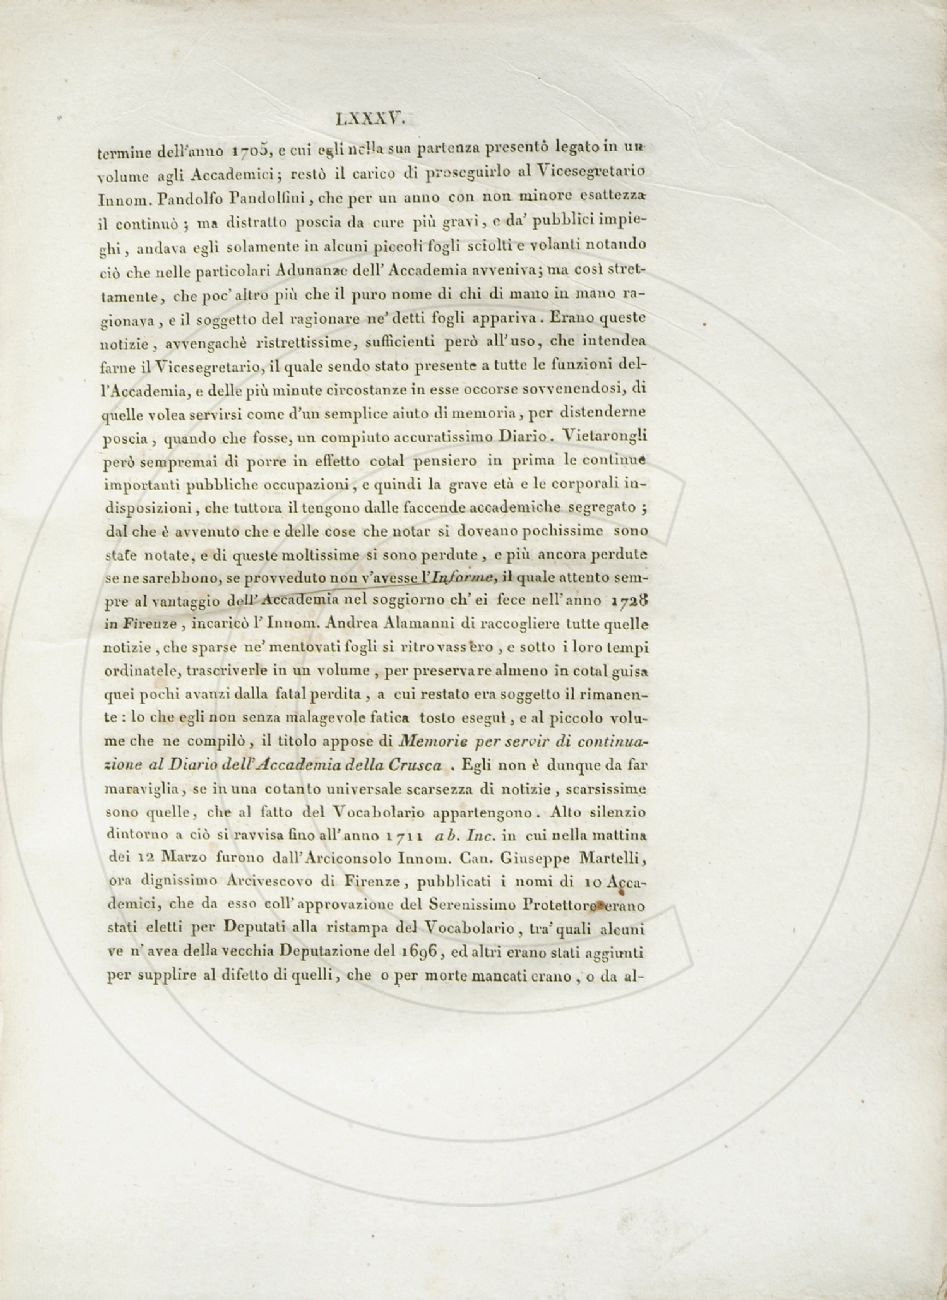 LXXXV.
termine dell'anno 1705, e cui egli nella sua partenza presentò legato in un
volume agli Accademici; restò il carico di proseguirlo al Vicesegretario
Innom. Pandolfo Pandolfini, che per un anno con non minore esattezza
il continuò; ma distratto poscia da cure più gravi, e da' pubblici impie-
ghi, andava egli solamente in alcuni piccoli fogli sciolti e volanti notando
ciò che nelle particolari Adunanze dell' Accademia avveniva; ma così stret-
tamente, che poc' altro più che il puro nome di chi di mano in mano ra-
gionava, e il soggetto del ragionare ne' detti fogli appariva. Erano queste
notizie, avvengachè ristrettissime, sufficienti però all'uso, che intendea
farne il Vicesegretario, il quale sendo stato presente a tutte le funzioni del-
l'Accademia, e delle più minute circostanze in esse occorse sovvenendosi, di
quelle volea servirsi come d'un semplice aiuto di memoria, per distenderne
poscia, quando che fosse, un compiuto accuratissimo Diario. Vietarongli
però sempremai di porre in effetto cotal pensiero in prima le continue
importanti pubbliche occupazioni, e quindi la grave età e le corporali in-
disposizioni, che tuttora il tengono dalle faccende accademiche segregato;
dal che è avvenuto che e delle cose che notar si doveano pochissime sono
state notate, e di queste moltissime si sono perdute, e più ancora perdute
se ne sarebbono, se provveduto non v'avesse l'Informe, il quale attento sem-
pre al vantaggio dell' Accademia nel soggiorno ch' ei fece nell' anno 1728
in Firenze, incaricò l' Innom. Andrea Alamanni di raccogliere tutte quelle
notizie, che sparse ne' mentovati fogli si ritrovassero, e sotto i loro tempi
ordinatele, trascriverle in un volume, per preservare almeno in cotal guisa
quei pochi avanzi dalla fatal perdita, a cui restato era soggetto il rimanen-
te: lo che egli non senza malagevole fatica tosto eseguì, e al piccolo volu-
me che ne compilò, il titolo appose di Memorie per servir di continua-
zione al Diario dell'Accademia della Crusca. Egli non è dunque da far
maraviglia, se in una cotanto universale scarsezza di notizie, scarsissime
sono quelle, che al fatto del Vocabolario appartengono. Alto silenzio
dintorno a ciò si ravvisa fino all'anno 1711 ab. Inc. in cui nella mattina
dei 12 Marzo furono dall'Arciconsolo Innom. Can. Giuseppe Martelli,
ora dignissimo Arcivescovo di Firenze, pubblicati i nomi di 10 Acca-
demici, che da esso coll'approvazione del Serenissimo Protettore erano
stati eletti per Deputati alla ristampa del Vocabolario, tra' quali alcuni
ve n' avea della vecchia Deputazione del 1696, ed altri erano stati aggiunti
per supplire al difetto di quelli, che o per morte mancati erano, o da al-